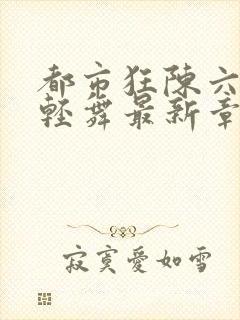 都市狂陈六
轻舞最新章
寂寞爱如雪